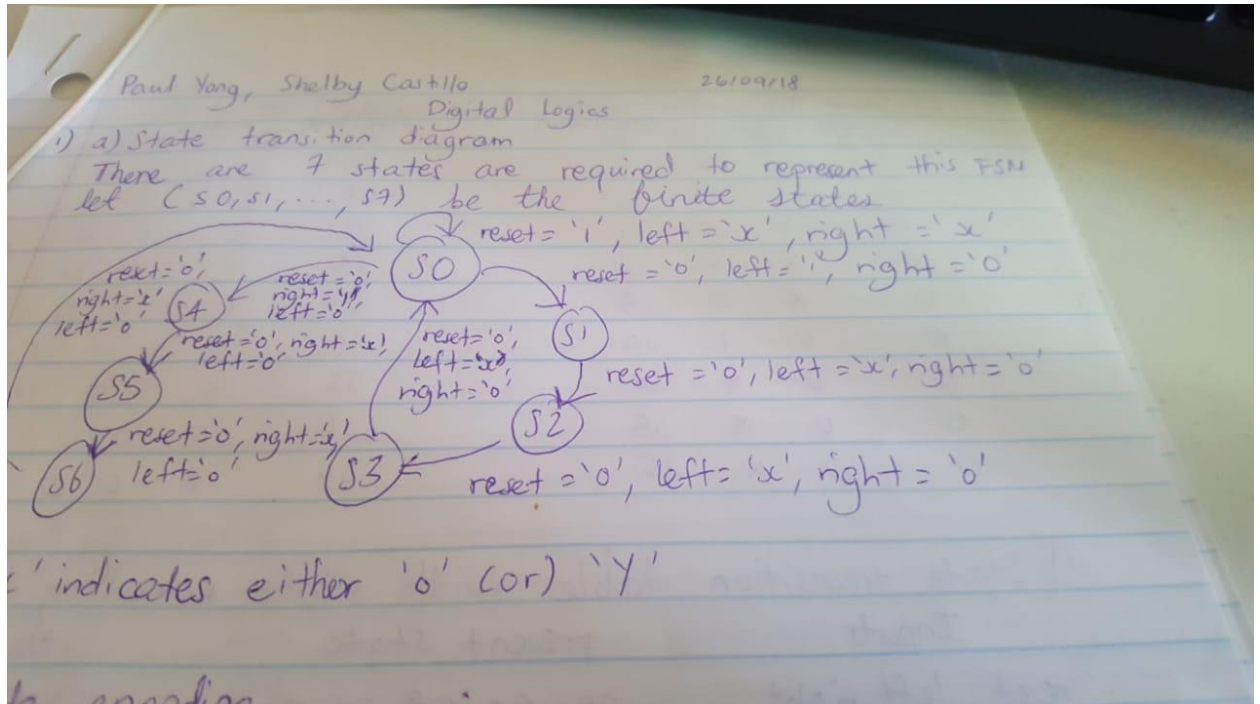 Paul Yong, Shelby Castillo 26/09/18
Digital Logics
1) a) State transition diagram
There are 7 states are required to represent this FSM
let (S0, S1, ..., S7) be the finite states
reset = '1', left = 'x', right = 'x'
S0
reset = '0', left = '1', right = '0'
reset='0',
right='x'
left='0'
S4
reset='0',
right='1'
left='0'
S1
reset='0', right='x',
left='0'
reset='0',
left='x',
right='0'
reset = '0', left = 'x', right = '0'
S5
S2
reset='0', right='x'
left='0'
S6
S3
reset = '0', left = 'x', right = '0'
' indicates either '0' (or) 'Y'
encoding